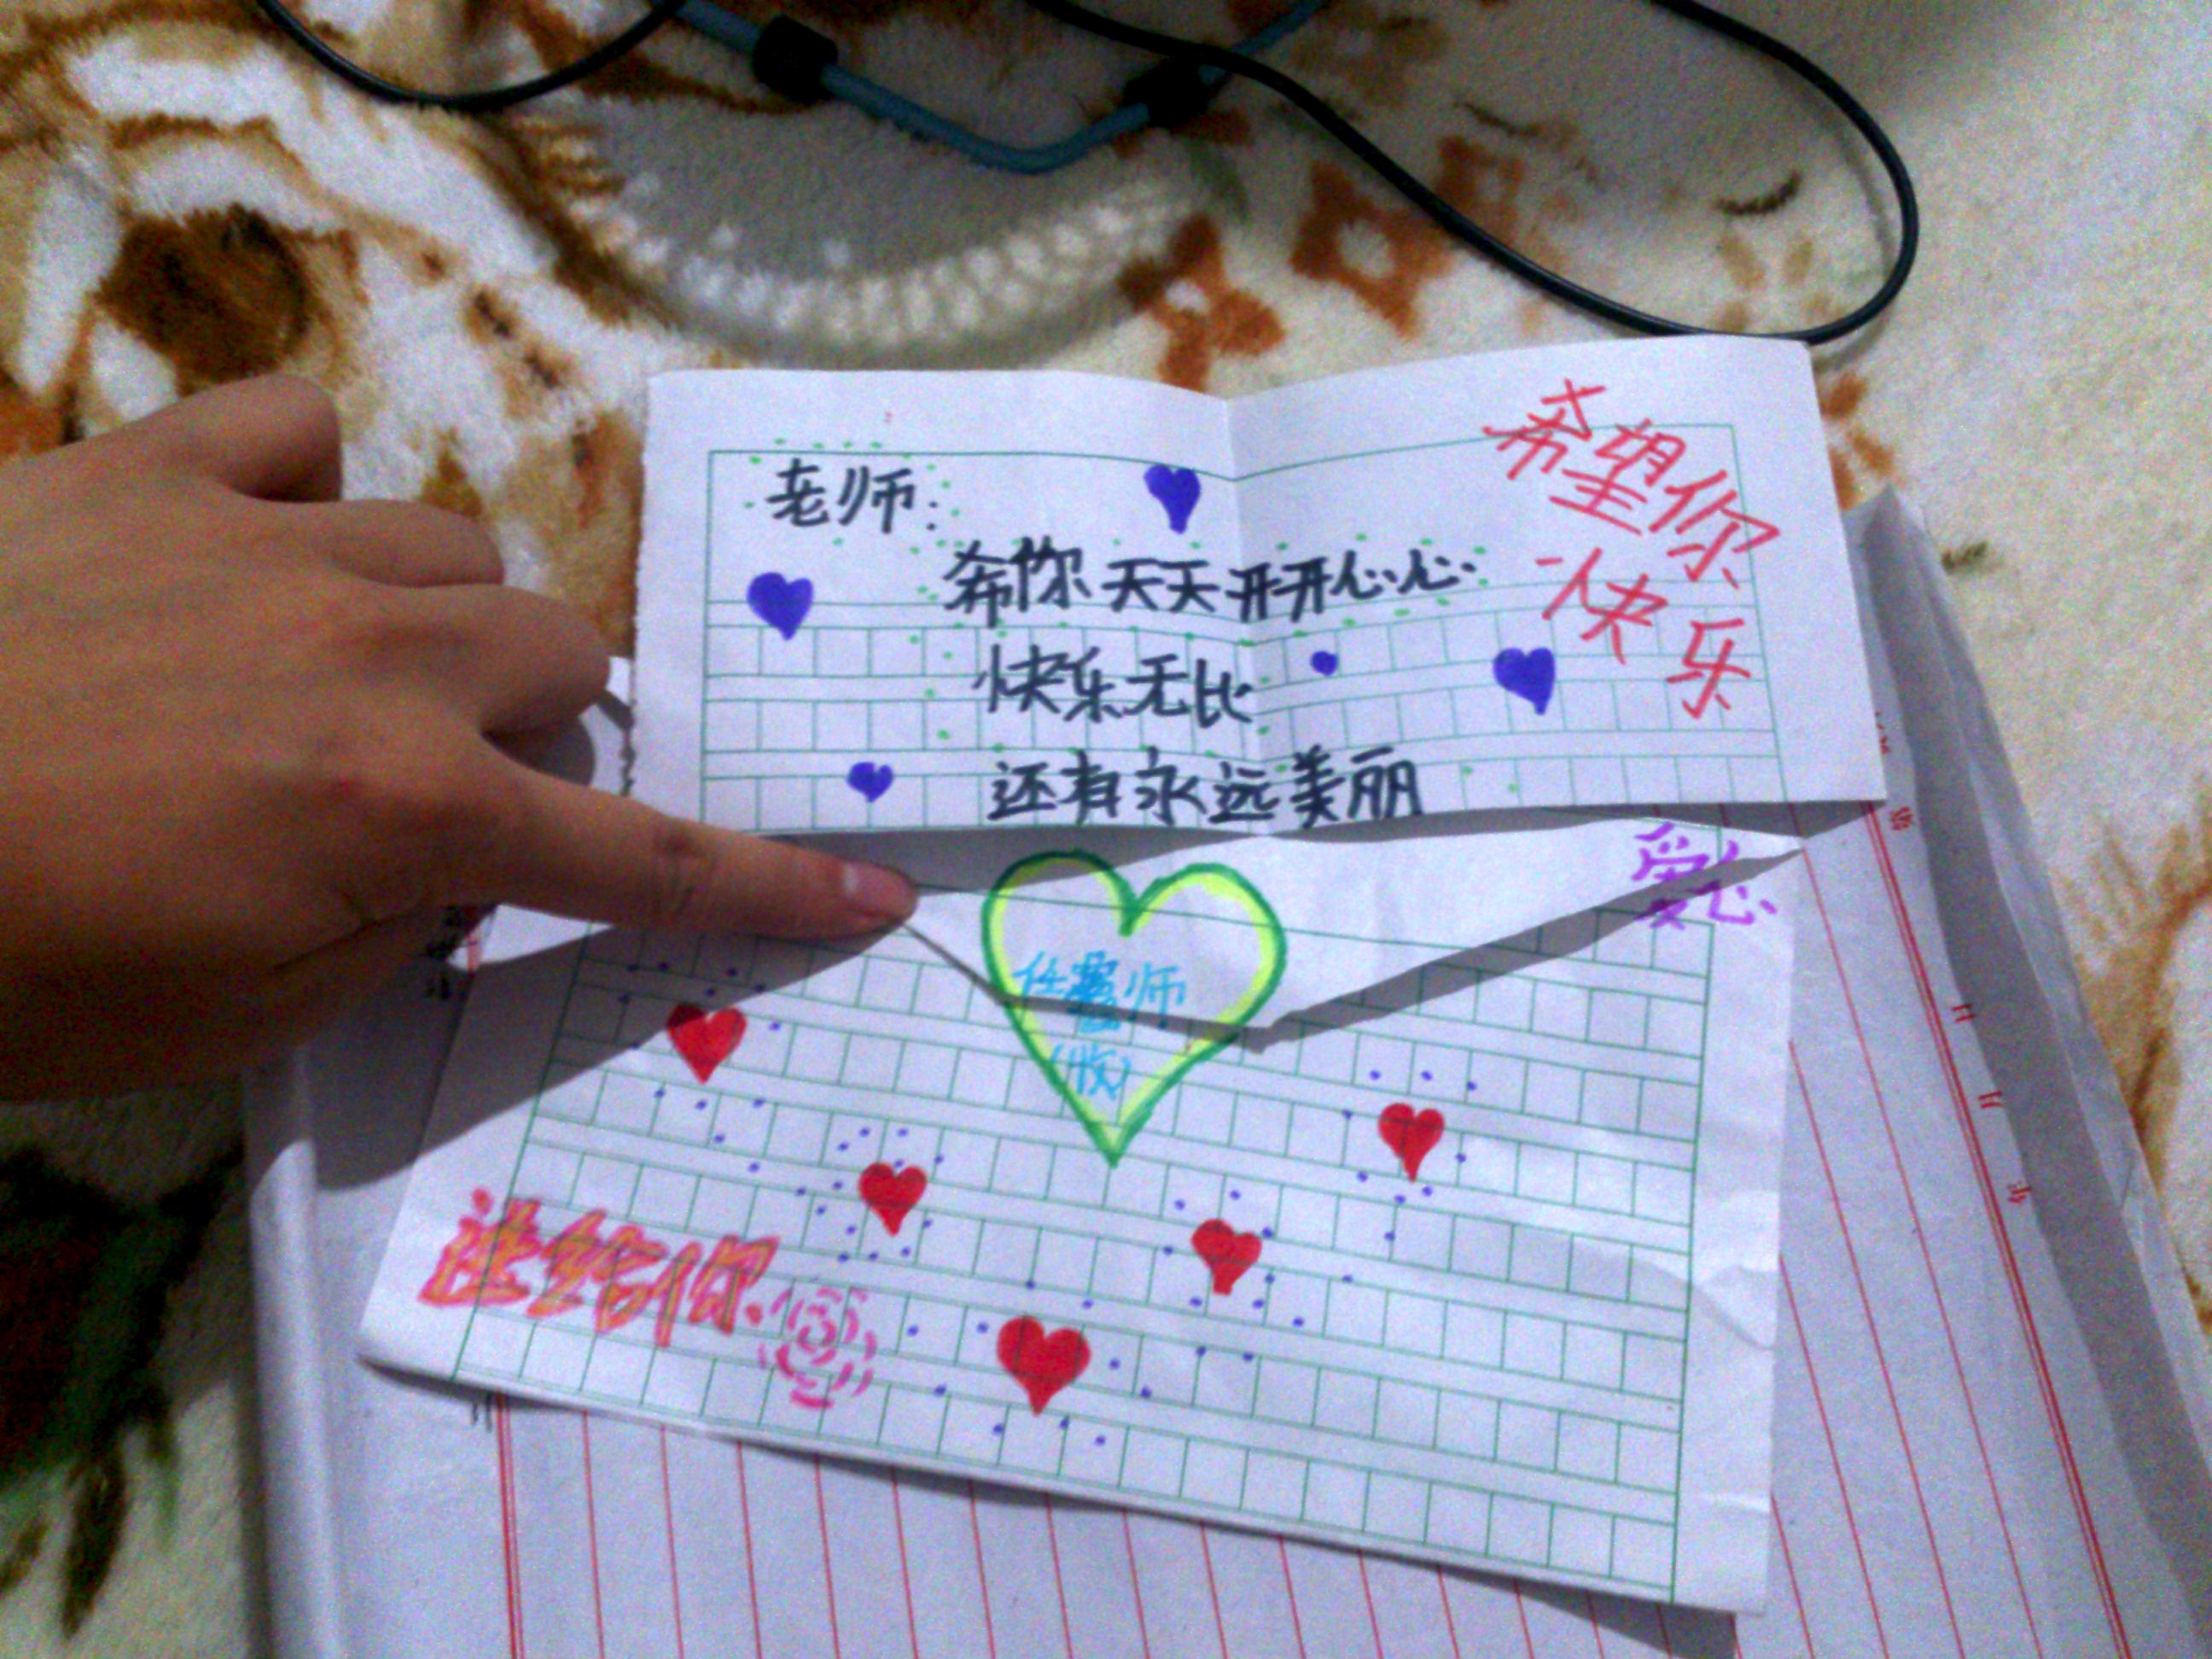 老师:
希你天天开开心心
快乐无比
还有永远美丽
希望你
快乐
爱心
任老师
(收)
送给你
日
月
年